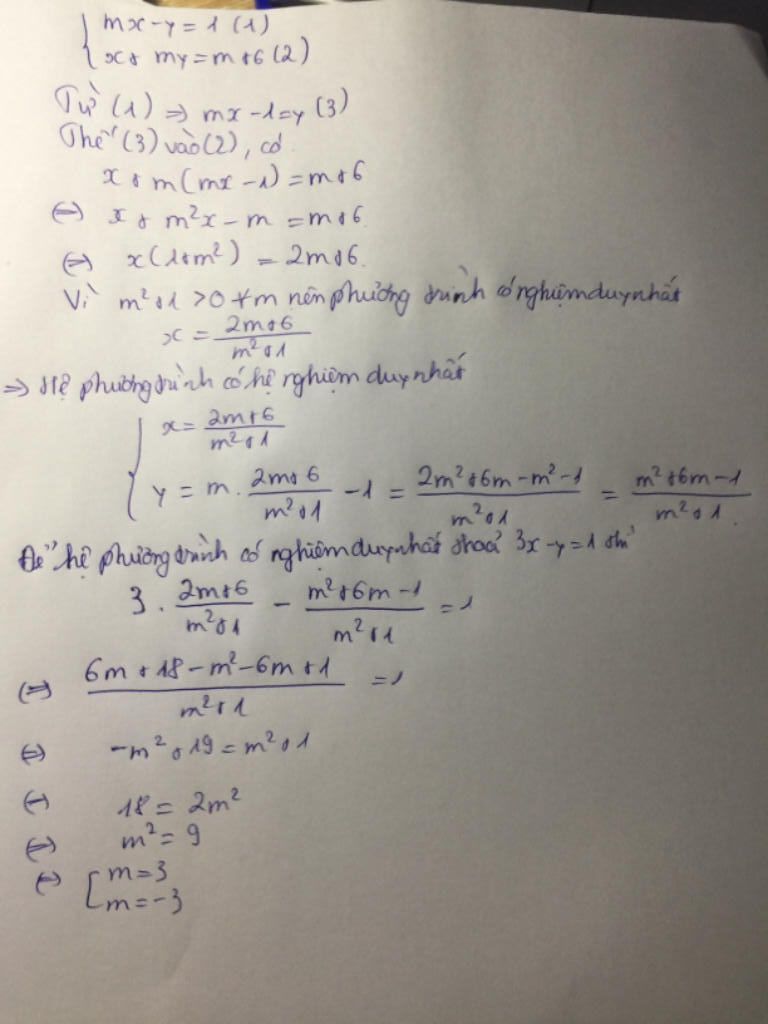 { mx - y = 1 (1)
x + my = m + 6 (2)
Từ (1) ⇒ mx - 1 = y (3)
Thế (3) vào (2), có
x + m(mx - 1) = m + 6
⇔ x + m²x - m = m + 6
⇔ x(1 + m²) = 2m + 6
Vì m² + 1 > 0 ∀m nên phương trình có nghiệm duy nhất
x = (2m + 6)/(m² + 1)
⇒ Hệ phương trình có hệ nghiệm duy nhất
{ x = (2m + 6)/(m² + 1)
y = m . (2m + 6)/(m² + 1) - 1 = (2m² + 6m - m² - 1)/(m² + 1) = (m² + 6m - 1)/(m² + 1).
Để hệ phương trình có nghiệm duy nhất thoả 3x - y = 1 thì
3 . (2m + 6)/(m² + 1) - (m² + 6m - 1)/(m² + 1) = 1
⇔ (6m + 18 - m² - 6m + 1)/(m² + 1) = 1
⇔ -m² + 19 = m² + 1
⇔ 18 = 2m²
⇔ m² = 9
⇔ [ m = 3
m = -3